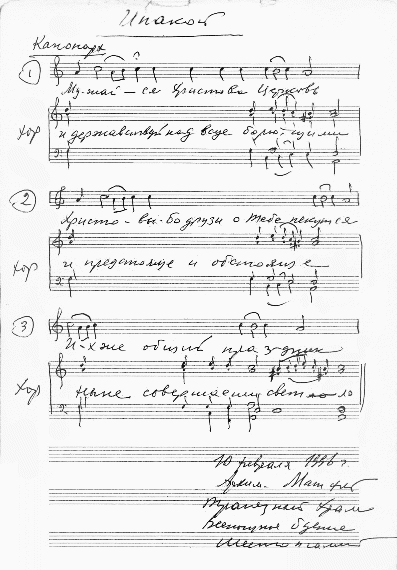 Ипакой
Канонарх
1
Му-жай-ся Христова Церковь
Хор
и державствуй над всеми борю-щими
2
Христо-вы-бо друзи о Тебе пекутся
Хор
и предстояще и обстояще
3
И-х же общий праздник
Хор
ныне совершаем свет-ло
10 февраля 1996 г.
Архим. Матфей
Трапезный Храм
Всенощное бдение